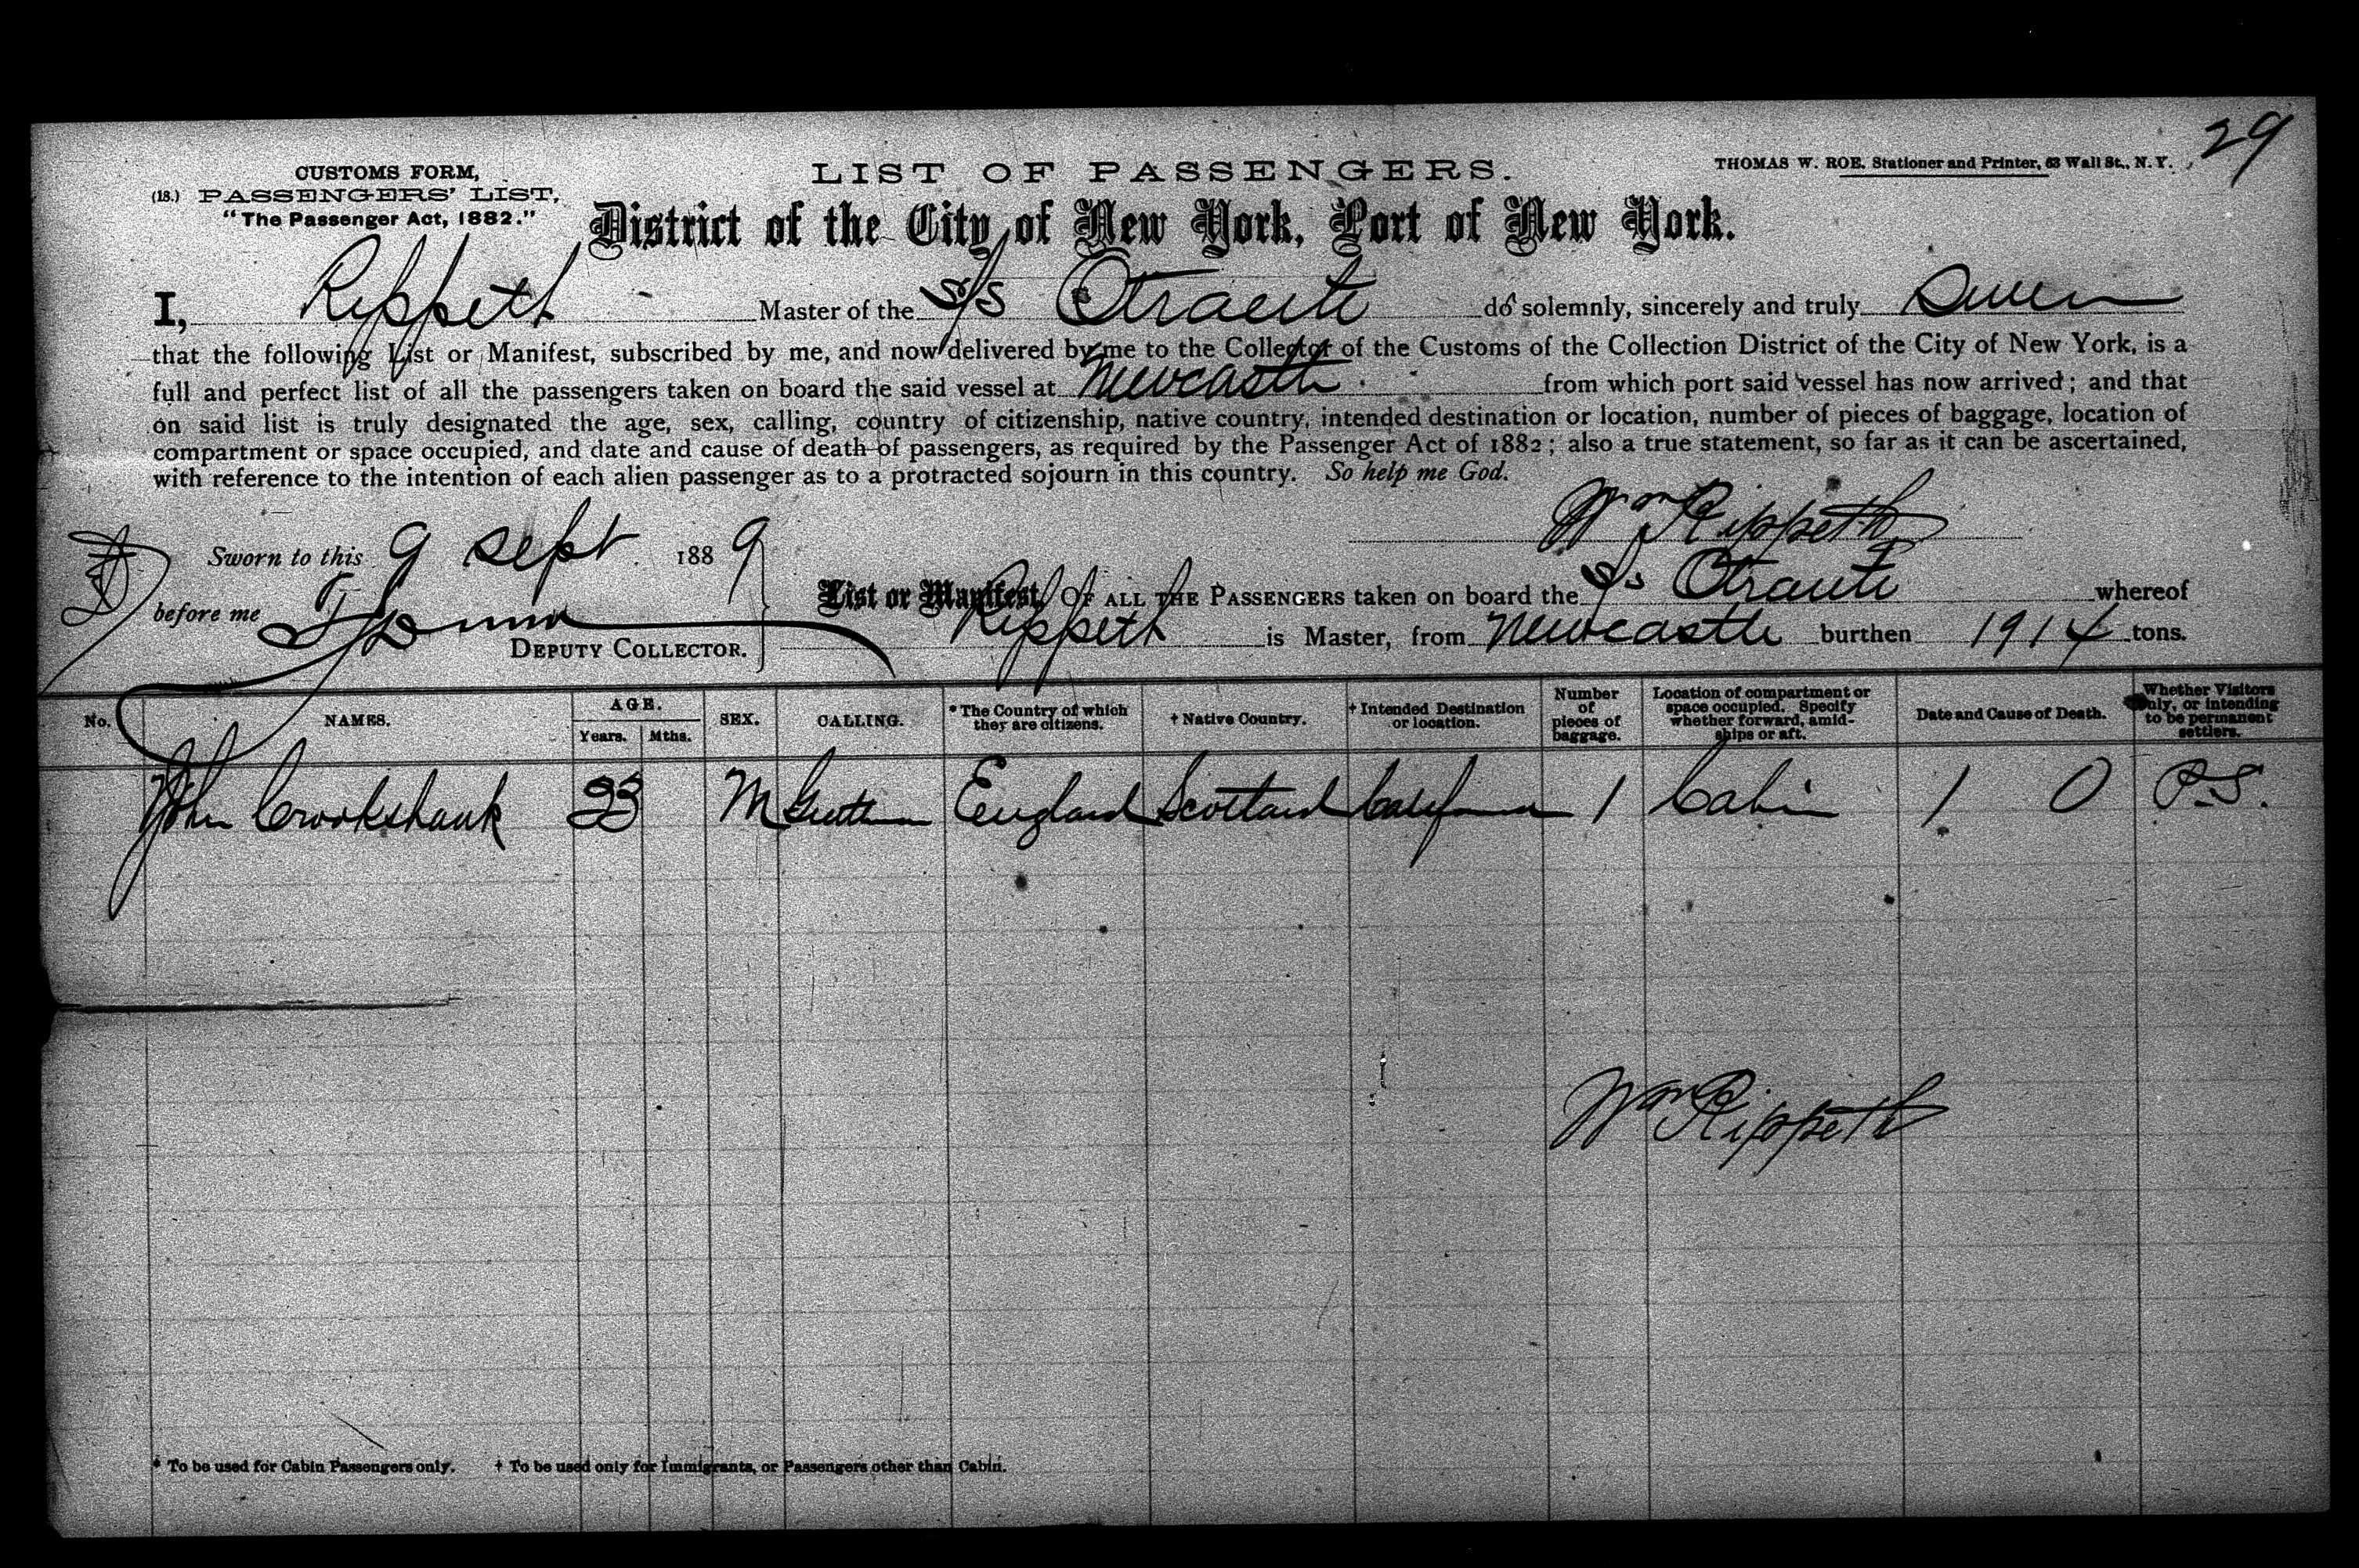 29
CUSTOMS FORM,
(18.) PASSENGERS' LIST,
"The Passenger Act, 1882."
LIST OF PASSENGERS.
THOMAS W. ROE, Stationer and Printer, 63 Wall St., N. Y.
District of the City of New York, Port of New York.
I, Rippeth Master of the S/S Otrante do solemnly, sincerely and truly
that the following List or Manifest, subscribed by me, and now delivered by me to the Collector of the Customs of the Collection District of the City of New York, is a
full and perfect list of all the passengers taken on board the said vessel at Newcastle from which port said vessel has now arrived; and that
on said list is truly designated the age, sex, calling, country of citizenship, native country, intended destination or location, number of pieces of baggage, location of
compartment or space occupied, and date and cause of death of passengers, as required by the Passenger Act of 1882; also a true statement, so far as it can be ascertained,
with reference to the intention of each alien passenger as to a protracted sojourn in this country. So help me God.
Wm Rippeth
Sworn to this 9 Sept. 1889
before me
DEPUTY COLLECTOR.
List or Manifest, OF ALL THE PASSENGERS taken on board the S/s Otrante whereof
Rippeth is Master, from Newcastle burthen 1914 tons.
No. NAMES. AGE. Years. Mths. SEX. CALLING. * The Country of which they are citizens. † Native Country. † Intended Destination or location. Number of pieces of baggage. Location of compartment or space occupied. Specify whether forward, amid-ships or aft. Date and Cause of Death. Whether Visitors only, or intending to be permanent settlers.
John Crookshank 23 M England Scotland California 1 Cabin 1 0 P.S.
Wm Rippeth
* To be used for Cabin Passengers only. † To be used only for Immigrants, or Passengers other than Cabin.